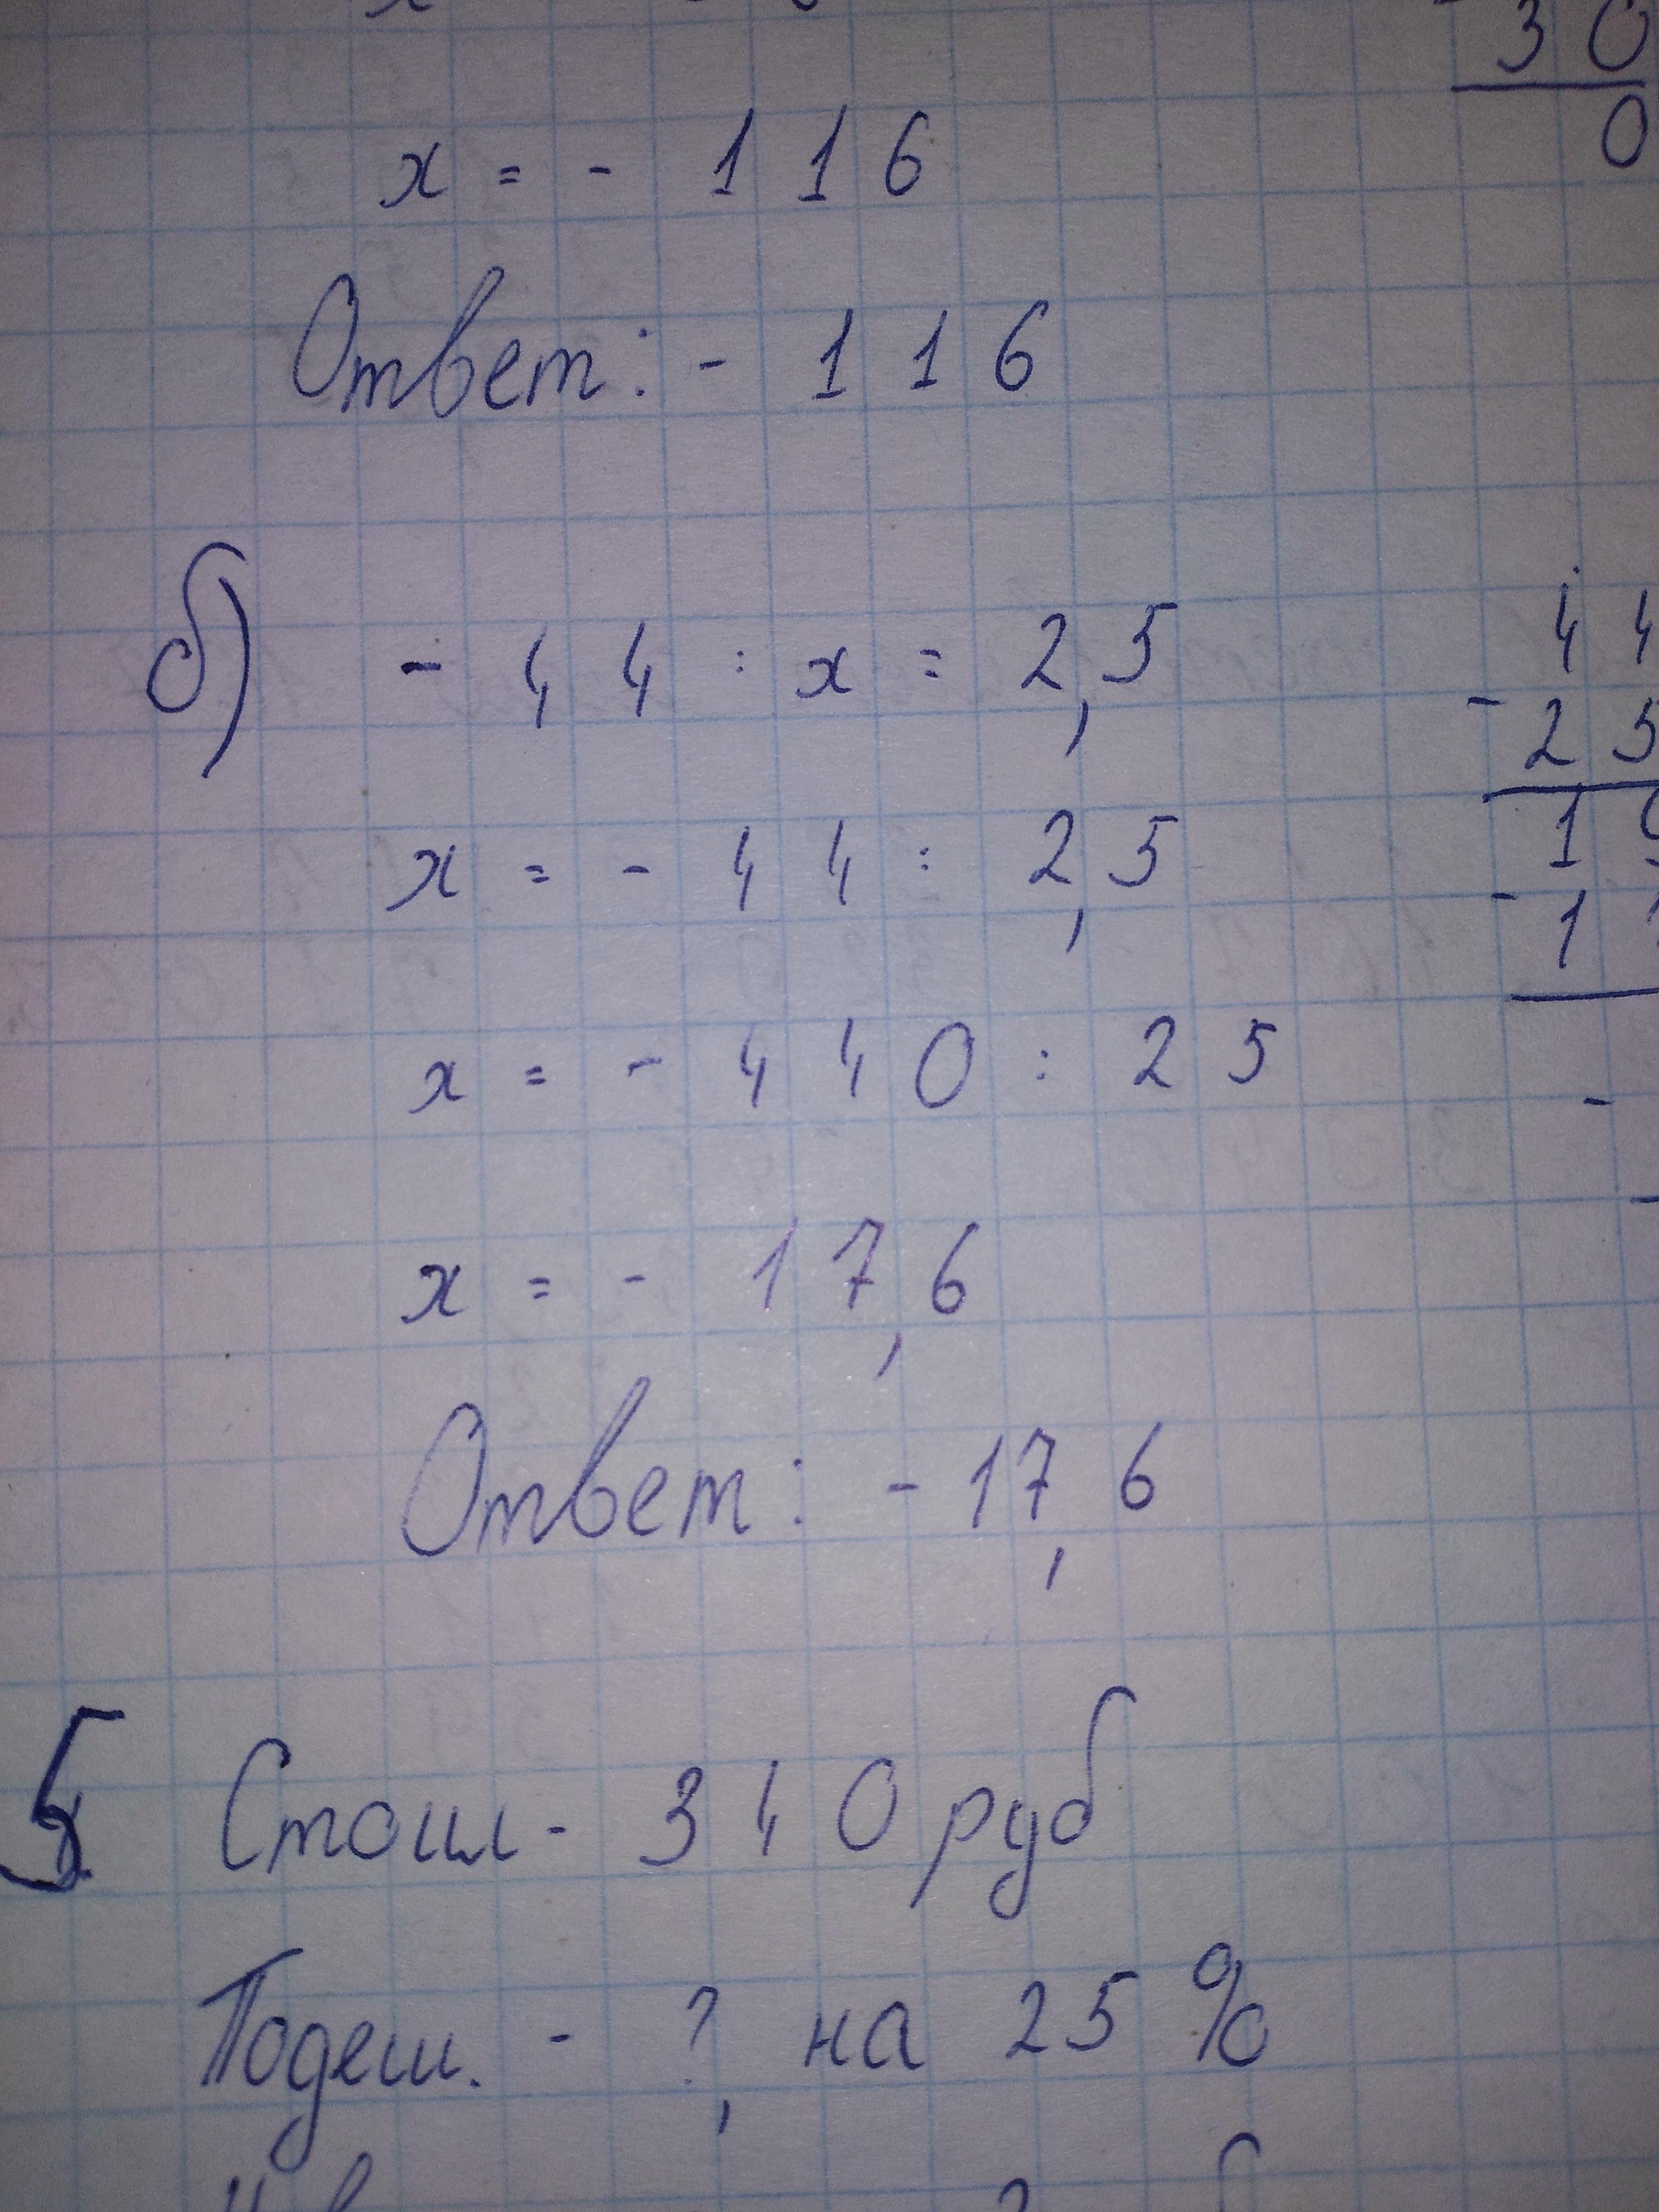 30
0
x = - 116
Ответ: - 116
б) - 44 : x = 2,5
x = - 44 : 2,5
x = - 440 : 25
x = - 17,6
Ответ: - 17,6
44
- 25
1
- 1
-
5 Стоил - 340 руб
Подеш. - ?, на 25 %